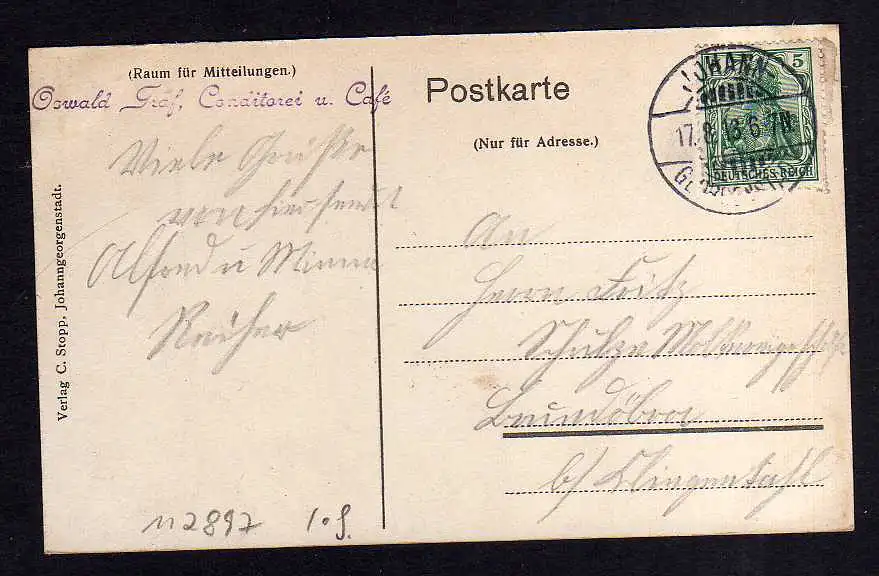 (Raum für Mitteilungen.)
Oswald Gräf, Conditorei u. Café
Viele Grüße
von hier sendet
Alfred u Minna
Postkarte
(Nur für Adresse.)
JOHANN-
17.8.13.6-7N.
5
DEUTSCHES-REICH
An
Herrn Fritz
Schulze
Brunndöbra
b/ Klingenthal
Verlag C. Stopp, Johanngeorgenstadt.
112897